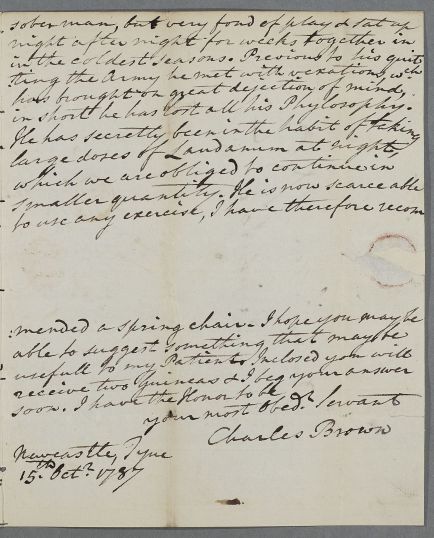 sober man, but very fond of play & sat up
night after night for weeks together in
in the coldest seasons. Previous to his quit
ting the Army he met with vexations, wch
has brought on great dejection of mind,
in short he has lost all his Phylosophy.
He has secretly been in the habit of taking
large doses of Laudanum at night,
which we are obliged to continue in
smaller quantity. He is now scarce able
to use any exercise, I have therefore recom
mended a spring chair. I hope you may be
able to suggest something that may be
usefull to my Patient. Inclosed you will
receive two Guineas & I beg your answer
soon. I have the Honor to be
your most Obedt. Servant
Charles Brown
Newcastle, Tyne
15th. Octr. 1787